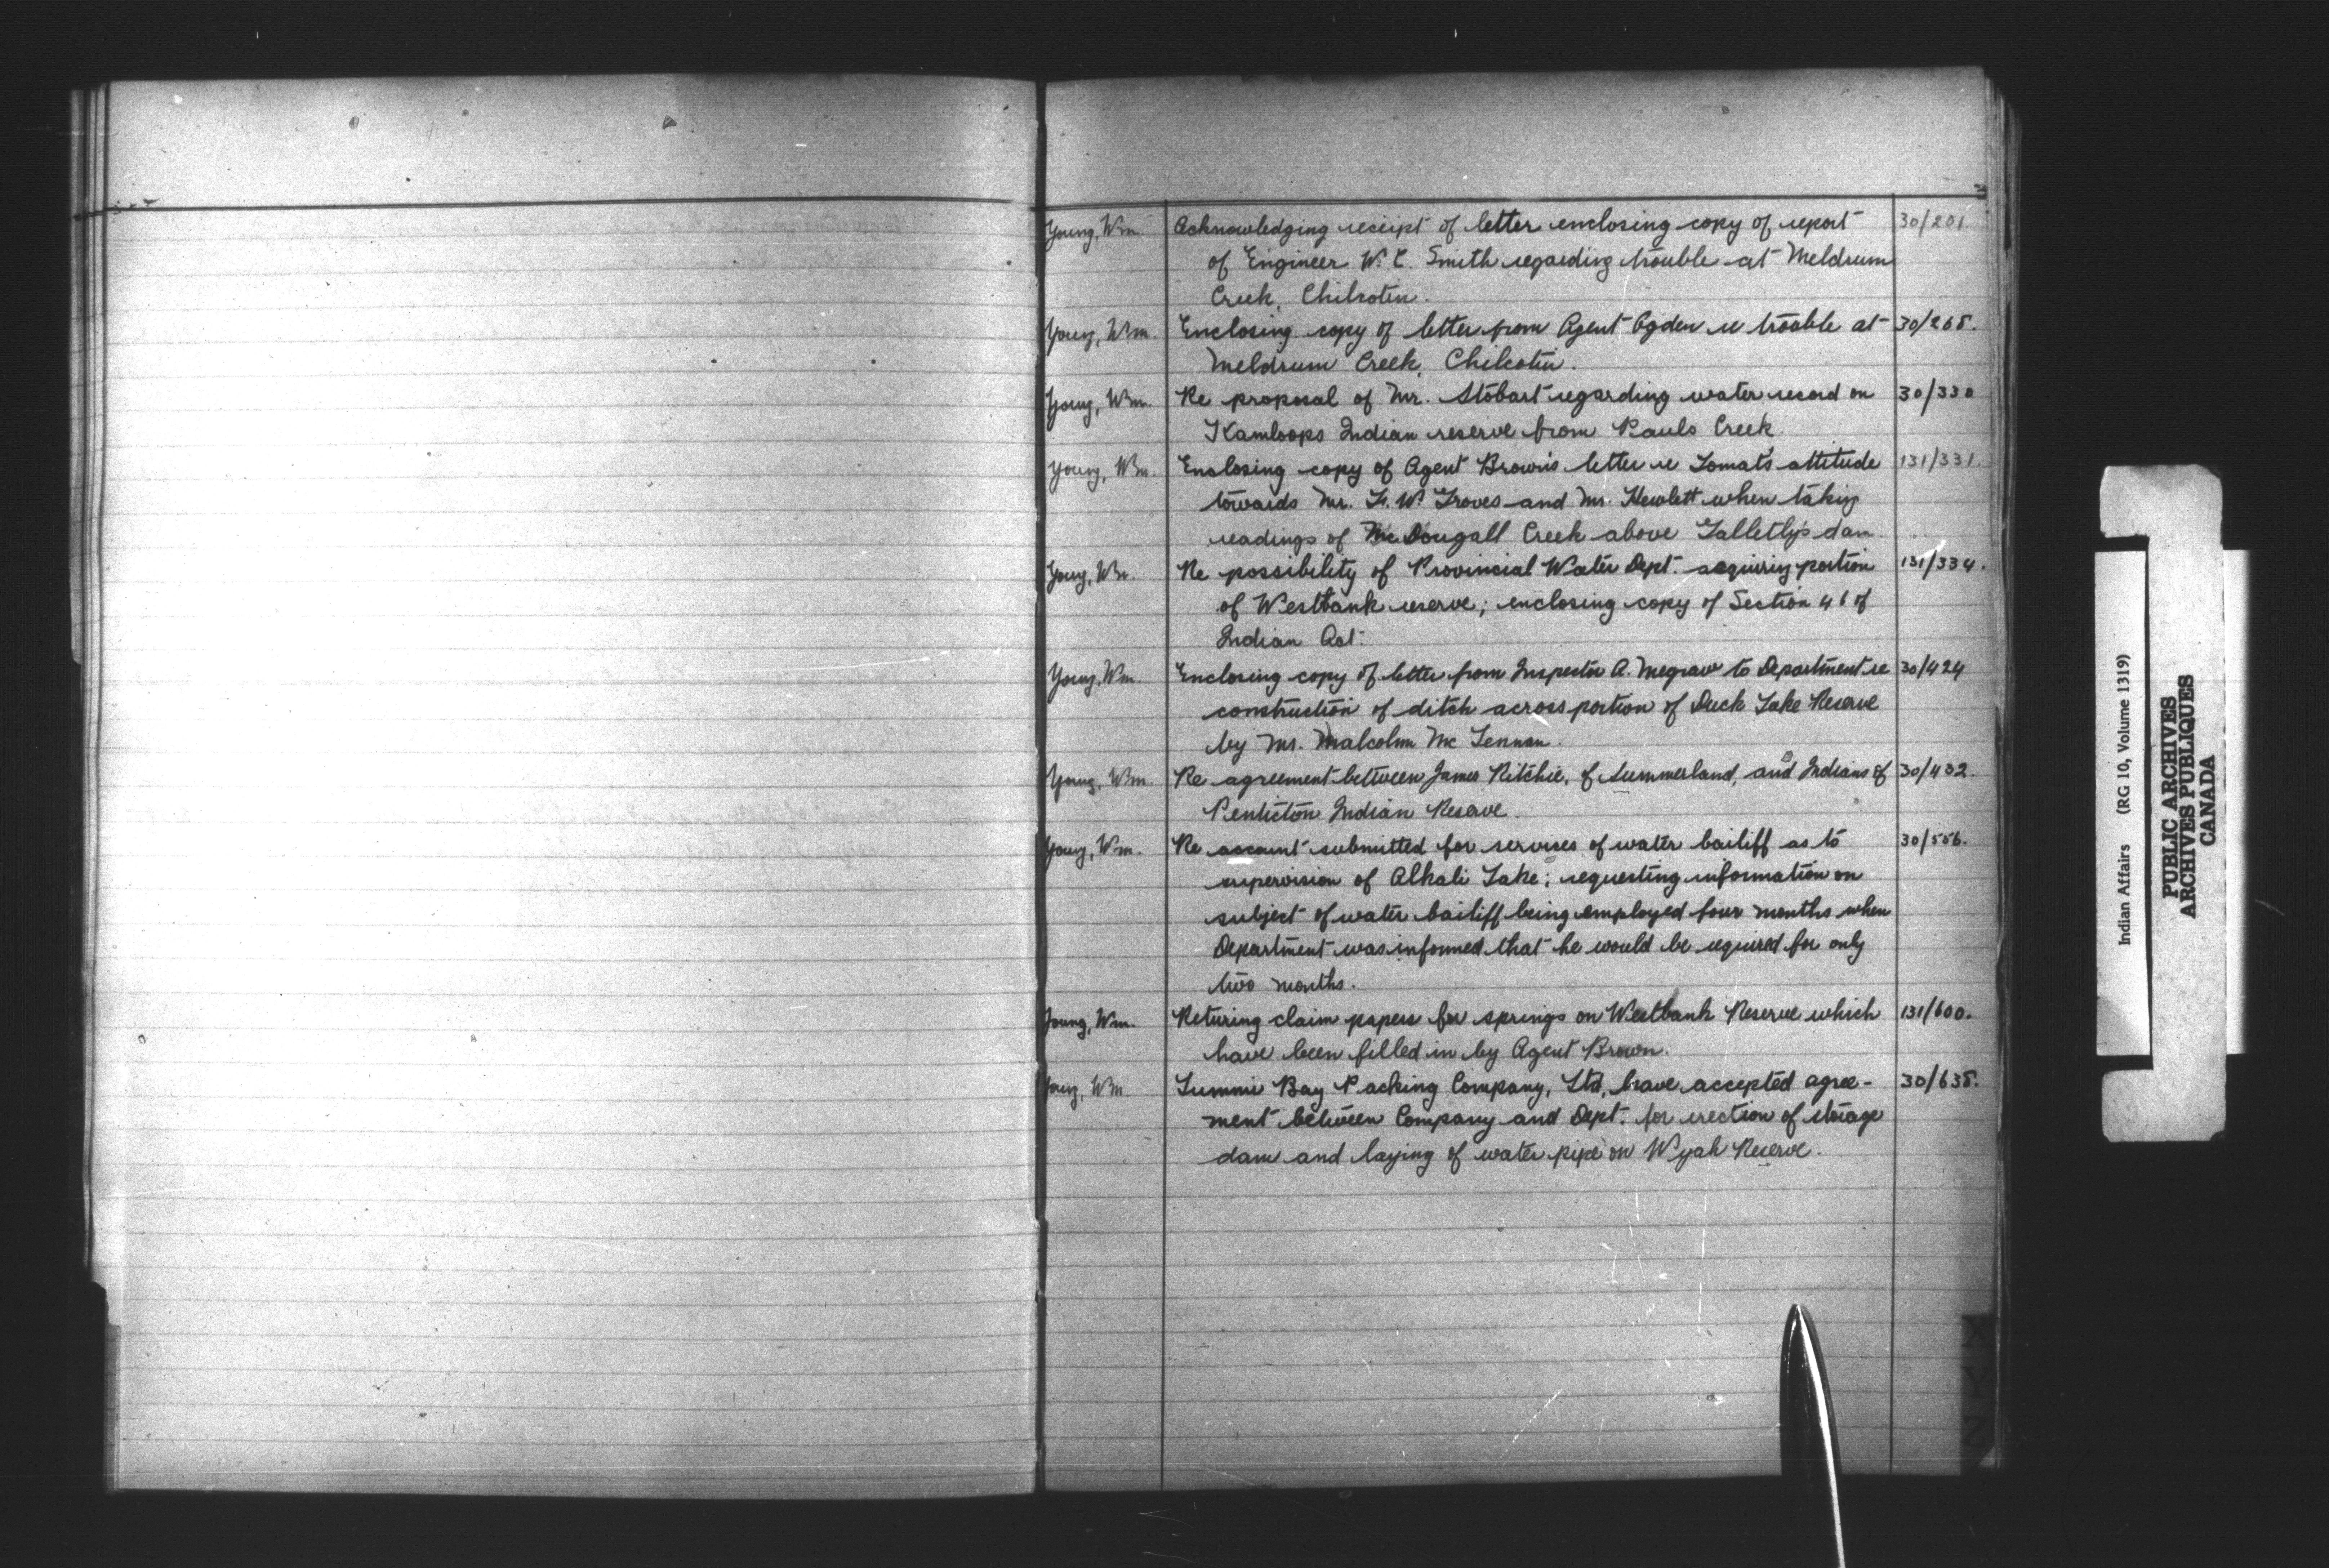 Young, Wm. Acknowledging receipt of letter enclosing copy of report 30/201
of Engineer W. C. Smith regarding trouble at Meldrum
Creek, Chilcotin.
Young, Wm. Enclosing copy of letter from Agent Ogden re trouble at 30/265.
Meldrum Creek, Chilcotin.
Young, Wm. Re proposal of Mr. Stobart regarding water record on 30/330
Kamloops Indian reserve from Pauls Creek.
Young, Wm. Enclosing copy of Agent Brown's letter re Tomat's attitude 131/331.
towards Mr. F. W. Groves and Mr. Hewlett when taking
readings of McDougall Creek above Galletly's dam
Young, Wm. Re possibility of Provincial Water Dept. acquiring portion 131/334.
of Westbank reserve; enclosing copy of Section 46 of
Indian Act.
Young, Wm. Enclosing copy of letter from Inspector A. Megraw to Department re 30/424
construction of ditch across portion of Duck Lake Reserve
by Mr. Malcolm McLennan.
Young, Wm. Re agreement between James Ritchie, of Summerland, and Indians of 30/432.
Penticton Indian Reserve.
Young, Wm. Re account submitted for services of water bailiff as to 30/556.
supervision of Alkali Lake; requesting information on
subject of water bailiff being employed four months when
Department was informed that he would be required for only
two months.
Young, Wm. Returing claim papers for springs on Westbank Reserve which 131/600.
have been filled in by Agent Brown.
Young, Wm. Lummi Bay Packing Company, Ltd, have accepted agree- 30/635.
ment between Company and Dept. for erection of storage
dam and laying of water pipe on Wyah Reserve.
X
Y
Z
Indian Affairs (RG 10, Volume 1319)
PUBLIC ARCHIVES
ARCHIVES PUBLIQUES
CANADA